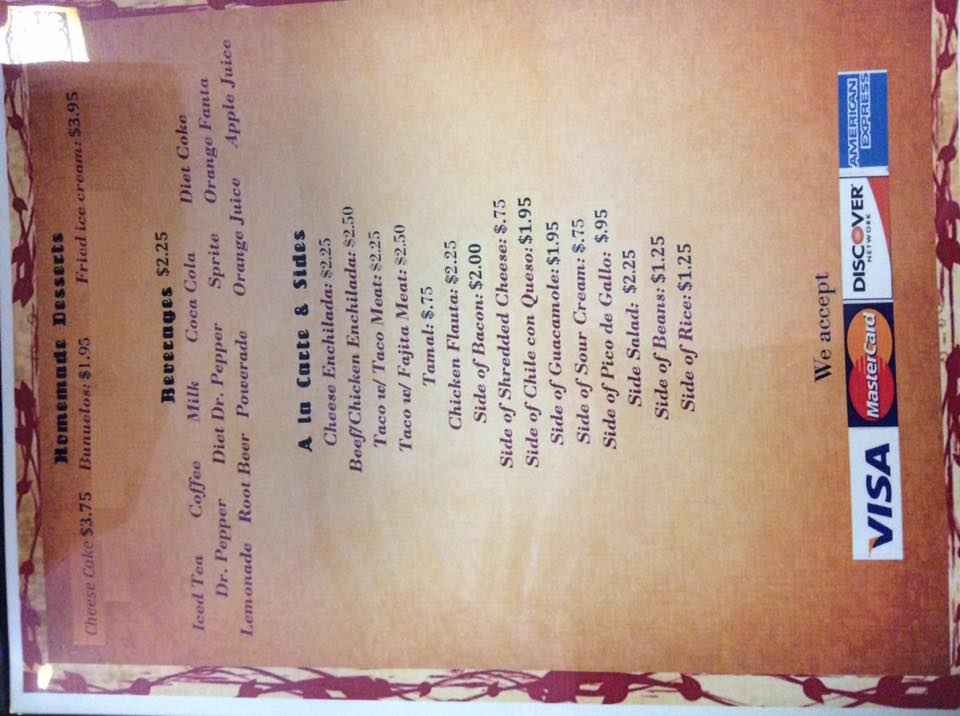 Homemade Desserts
Cheese Cake $3.75 Bunuelos: $1.95 Fried ice cream: $3.95
Beverages $2.25
Iced Tea Coffee Milk Coca Cola Diet Coke
Dr. Pepper Diet Dr. Pepper Sprite Orange Fanta
Lemonade Root Beer Powerade Orange Juice Apple Juice
A la Carte & Sides
Cheese Enchilada: $2.25
Beef/Chicken Enchilada: $2.50
Taco w/ Taco Meat: $2.25
Taco w/ Fajita Meat: $2.50
Tamal: $.75
Chicken Flauta: $2.25
Side of Bacon: $2.00
Side of Shredded Cheese: $.75
Side of Chile con Queso: $1.95
Side of Guacamole: $1.95
Side of Sour Cream: $.75
Side of Pico de Gallo: $.95
Side Salad: $2.25
Side of Beans: $1.25
Side of Rice: $1.25
We accept
VISA MasterCard DISCOVER NETWORK AMERICAN EXPRESS